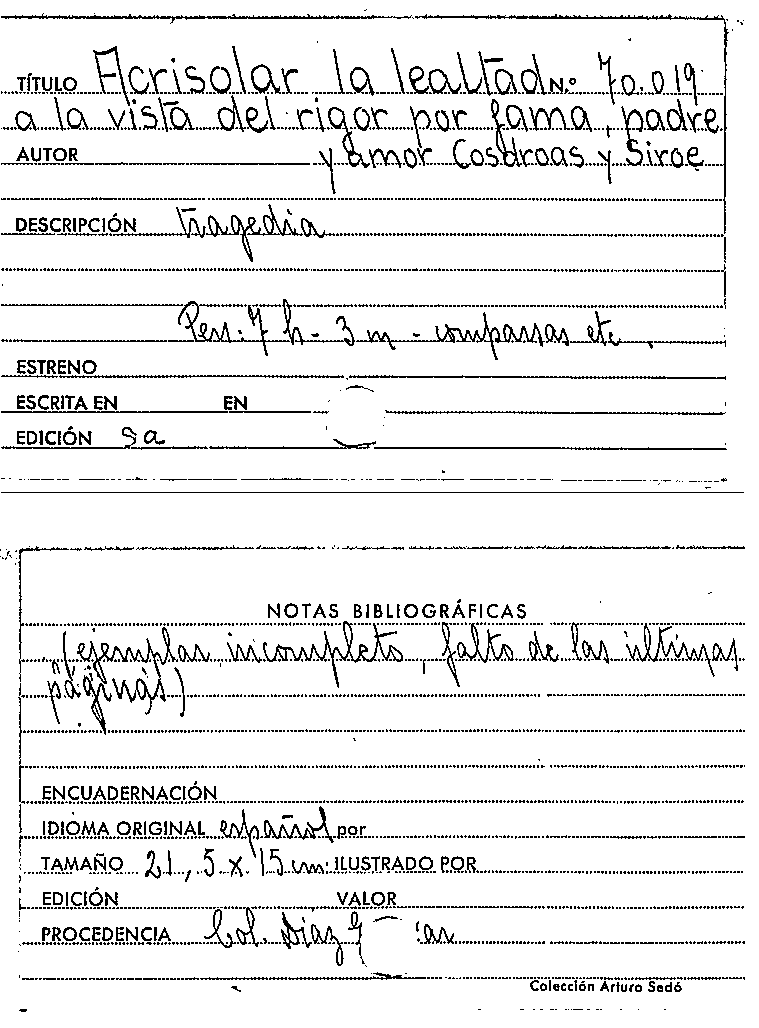 TÍTULO Acrisolar la lealtad N.º 70.019
a la vista del rigor por fama, padre
AUTOR y amor Cosdroas y Siroe
DESCRIPCIÓN tragedia
Pers: 7 h - 3 m - comparsas etc.
ESTRENO
ESCRITA EN EN
EDICIÓN sa
NOTAS BIBLIOGRÁFICAS
(ejemplar incompleto, falto de las últimas
páginas)
ENCUADERNACIÓN
IDIOMA ORIGINAL español por
TAMAÑO 21,5 x 15 cm. ILUSTRADO POR
EDICIÓN VALOR
PROCEDENCIA Col. Díaz
Colección Arturo Sedó